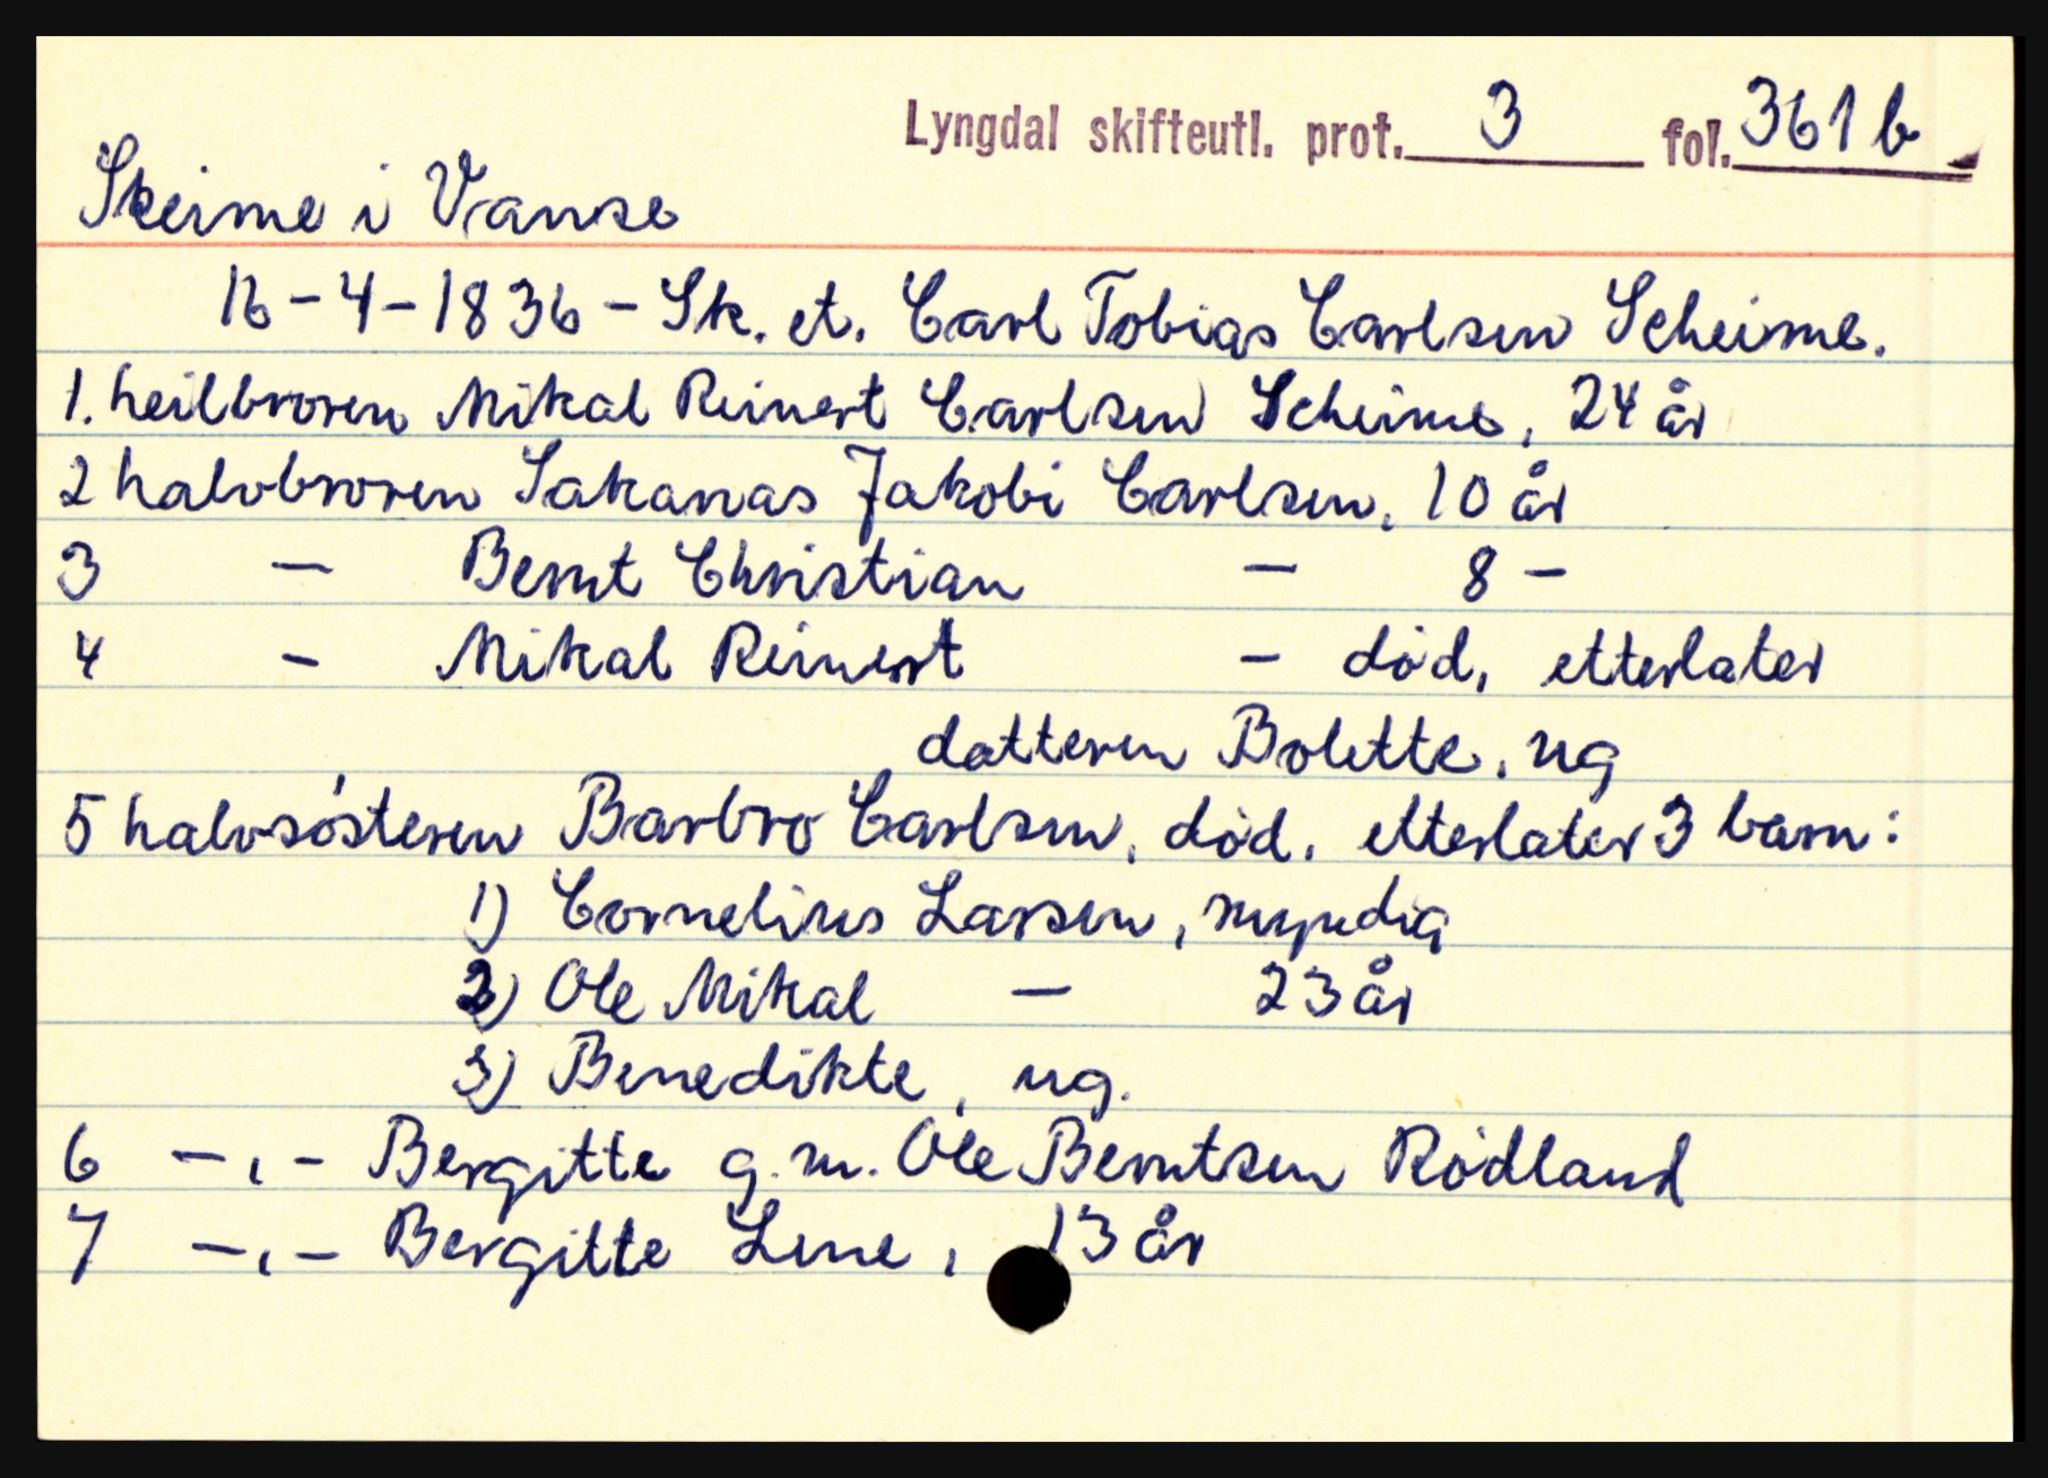 Lyngdal skifteutl. prot. 3 fol. 361 b
Skeime i Vanse
16-4-1836 - Sk. et. Carl Tobias Carlsen Scheime.
1. heilbroren Mikal Reinert Carlsen Scheime, 24 år
2 halvbroren Sakarias Jakobi Carlsen, 10 år
3 - Bernt Christian - 8 -
4 - Mikal Reinert - død, etterlater
datteren Bolette, ug
5 halvsøsteren Barbro Carlsen, død, etterlater 3 barn:
1) Cornelius Larsen, myndig
2) Ole Mikal - 23 år
3) Benedikte, ug.
6 -,- Bergitte g.m. Ole Berntsen Rødland
7 -,- Bergitte Lene, 13 år